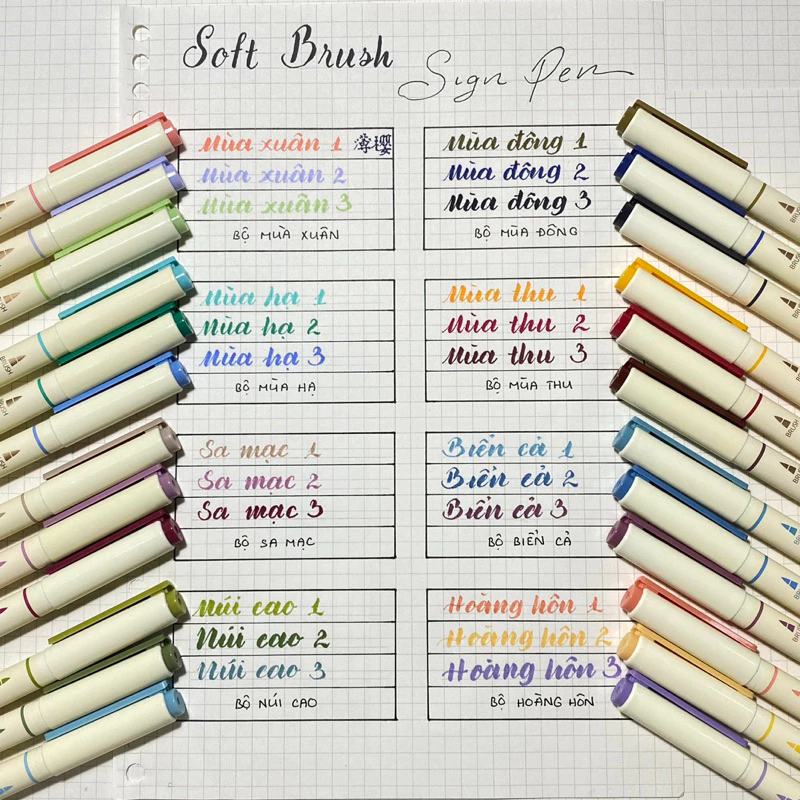 Soft Brush
Sign Pen
Mùa xuân 1 薄櫻
Mùa xuân 2
Mùa xuân 3
BỘ MÙA XUÂN
Mùa đông 1
Mùa đông 2
Mùa đông 3
BỘ MÙA ĐÔNG
Mùa hạ 1
Mùa hạ 2
Mùa hạ 3
BỘ MÙA HẠ
Mùa thu 1
Mùa thu 2
Mùa thu 3
BỘ MÙA THU
Sa mạc 1
Sa mạc 2
Sa mạc 3
BỘ SA MẠC
Biển cả 1
Biển cả 2
Biển cả 3
BỘ BIỂN CẢ
Núi cao 1
Núi cao 2
Núi cao 3
BỘ NÚI CAO
Hoàng hôn 1
Hoàng hôn 2
Hoàng hôn 3
BỘ HOÀNG HÔN
BRUSH
BRUSH
BRUSH
BRUSH
BRUSH
BRUSH